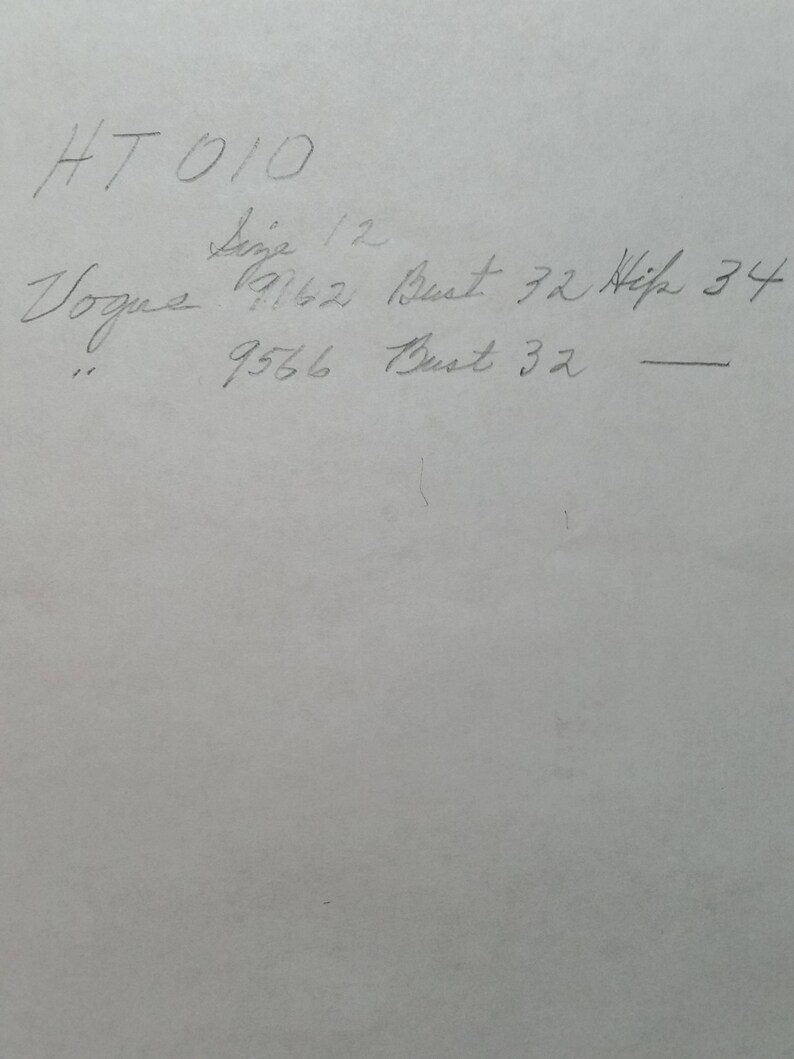 HT 010
Size 12
Vogue 9162 Bust 32 Hip 34
" 9566 Bust 32 —